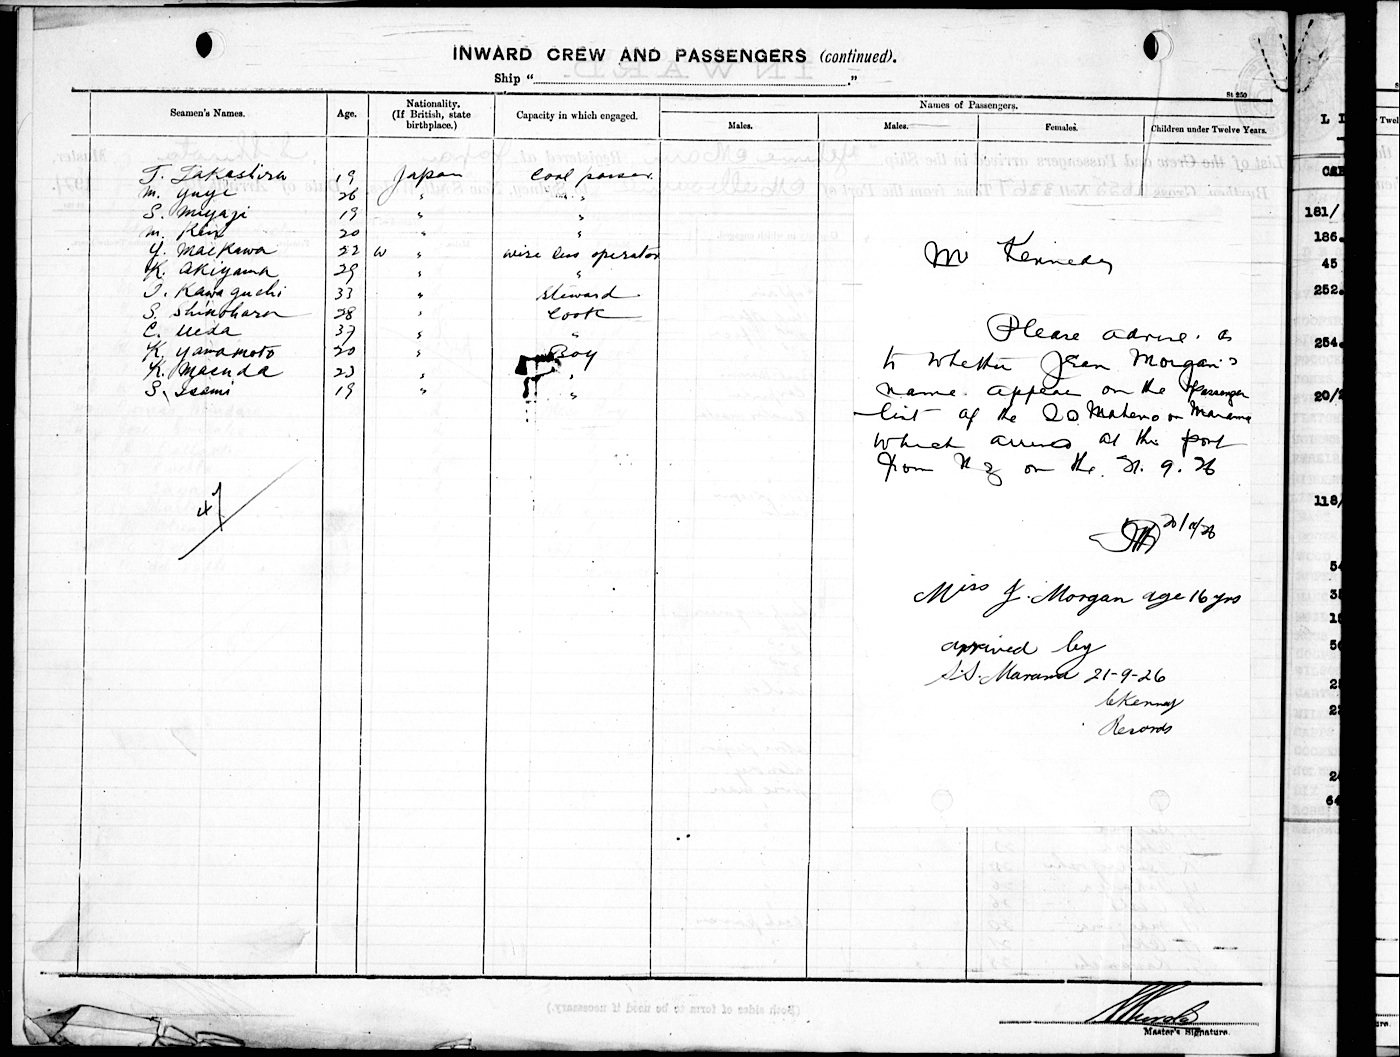 INWARD CREW AND PASSENGERS (continued).
Ship "
."
St 250
Seamen's Names. Age. Nationality. (If British, state birthplace.) Capacity in which engaged. Names of Passengers.
Males. Males. Females. Children under Twelve Years.
T. Takashira 19 Japan Coal passer
M. Yugi 26 " "
S. Miyagi 19 " "
M. Ken 20 " "
Y. Maekawa 22 w " wire less operator
K. Akiyama 29 " "
T. Kawaguchi 33 " Steward
S. Shinohara 28 " Cook
C. Ueda 37 " "
K. Yamamoto 20 " Boy
K. Masuda 23 " "
S. Isomi 19 " "
47
Mr Kennedy
Please advise as
to whether Jean Morgan's
name appear on the passenger
list of the SS Maheno or Marama
which arrived at this port
from N Z on the 21. 9. 26
20/10/26
Miss J. Morgan age 16 yrs
arrived by
S.S. Marama 21-9-26
Records
Master's Signature.
(Both sides of form to be used if necessary.)
L I
CAB
181/
186.
45
252.
254.
20/2
118/
54
64